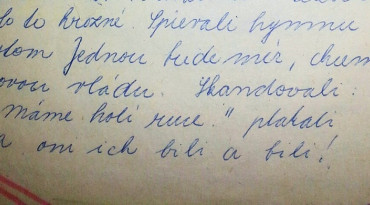 lo to hrozné. Spievali hymnu
tom Jednou bude mír, chcem
ovou vládu. Skandovali:
máme holé ruce." plakali
a oni ich bili a bili!